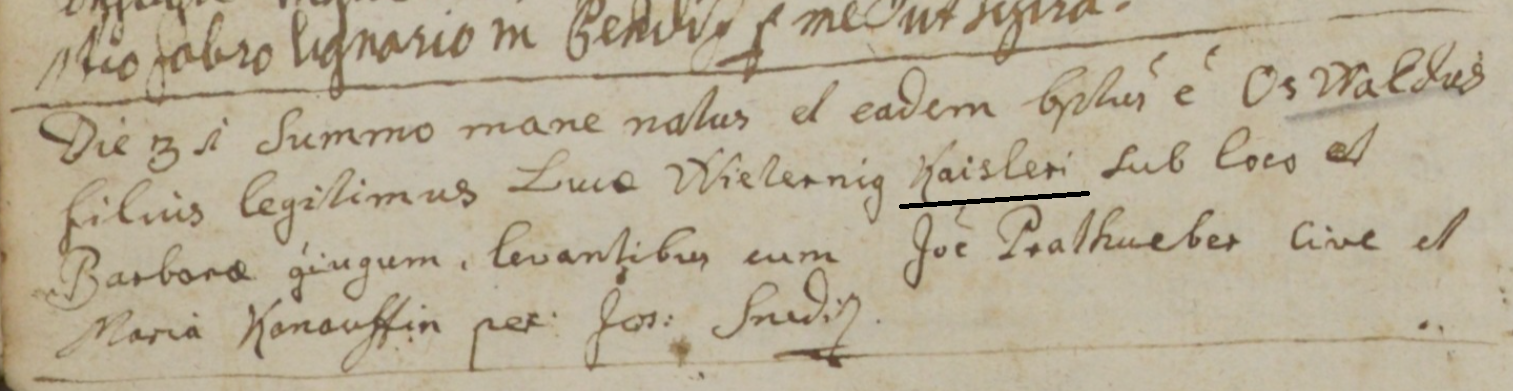 fabro lignario in
Die 31 Summo mane natus et eadem bptus e Oswaldus
filius legitimus Lucæ Wieternig Kaisleri sub loco et
Barboræ giugum, levantibus eum Joe Prathueber Cive et
Maria Kanauffin per Jos: Snediz.